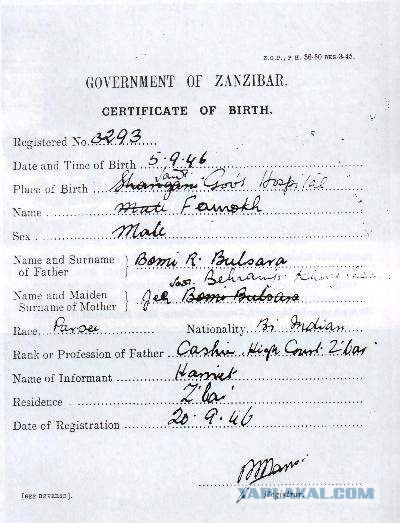 Z.G.P., P.H. 36-50 BKS-3-45.
GOVERNMENT OF ZANZIBAR.
CERTIFICATE OF BIRTH.
Registered No. 3293
Date and Time of Birth 5.9.46
Place of Birth Shangani Gov't Hospital
Name Farrokh
Sex Male
Name and Surname of Father } Bomi R. Bulsara
Name and Maiden Surname of Mother } Jer Bomi Bulsara
Race. Parsee Nationality. Br Indian
Rank or Profession of Father Cashier High Court Z'bar
Name of Informant Harriet
Residence Z'bar
Date of Registration 20.9.46
Registrar.
[SEE REVERSE].
YAPLAKAL.COM